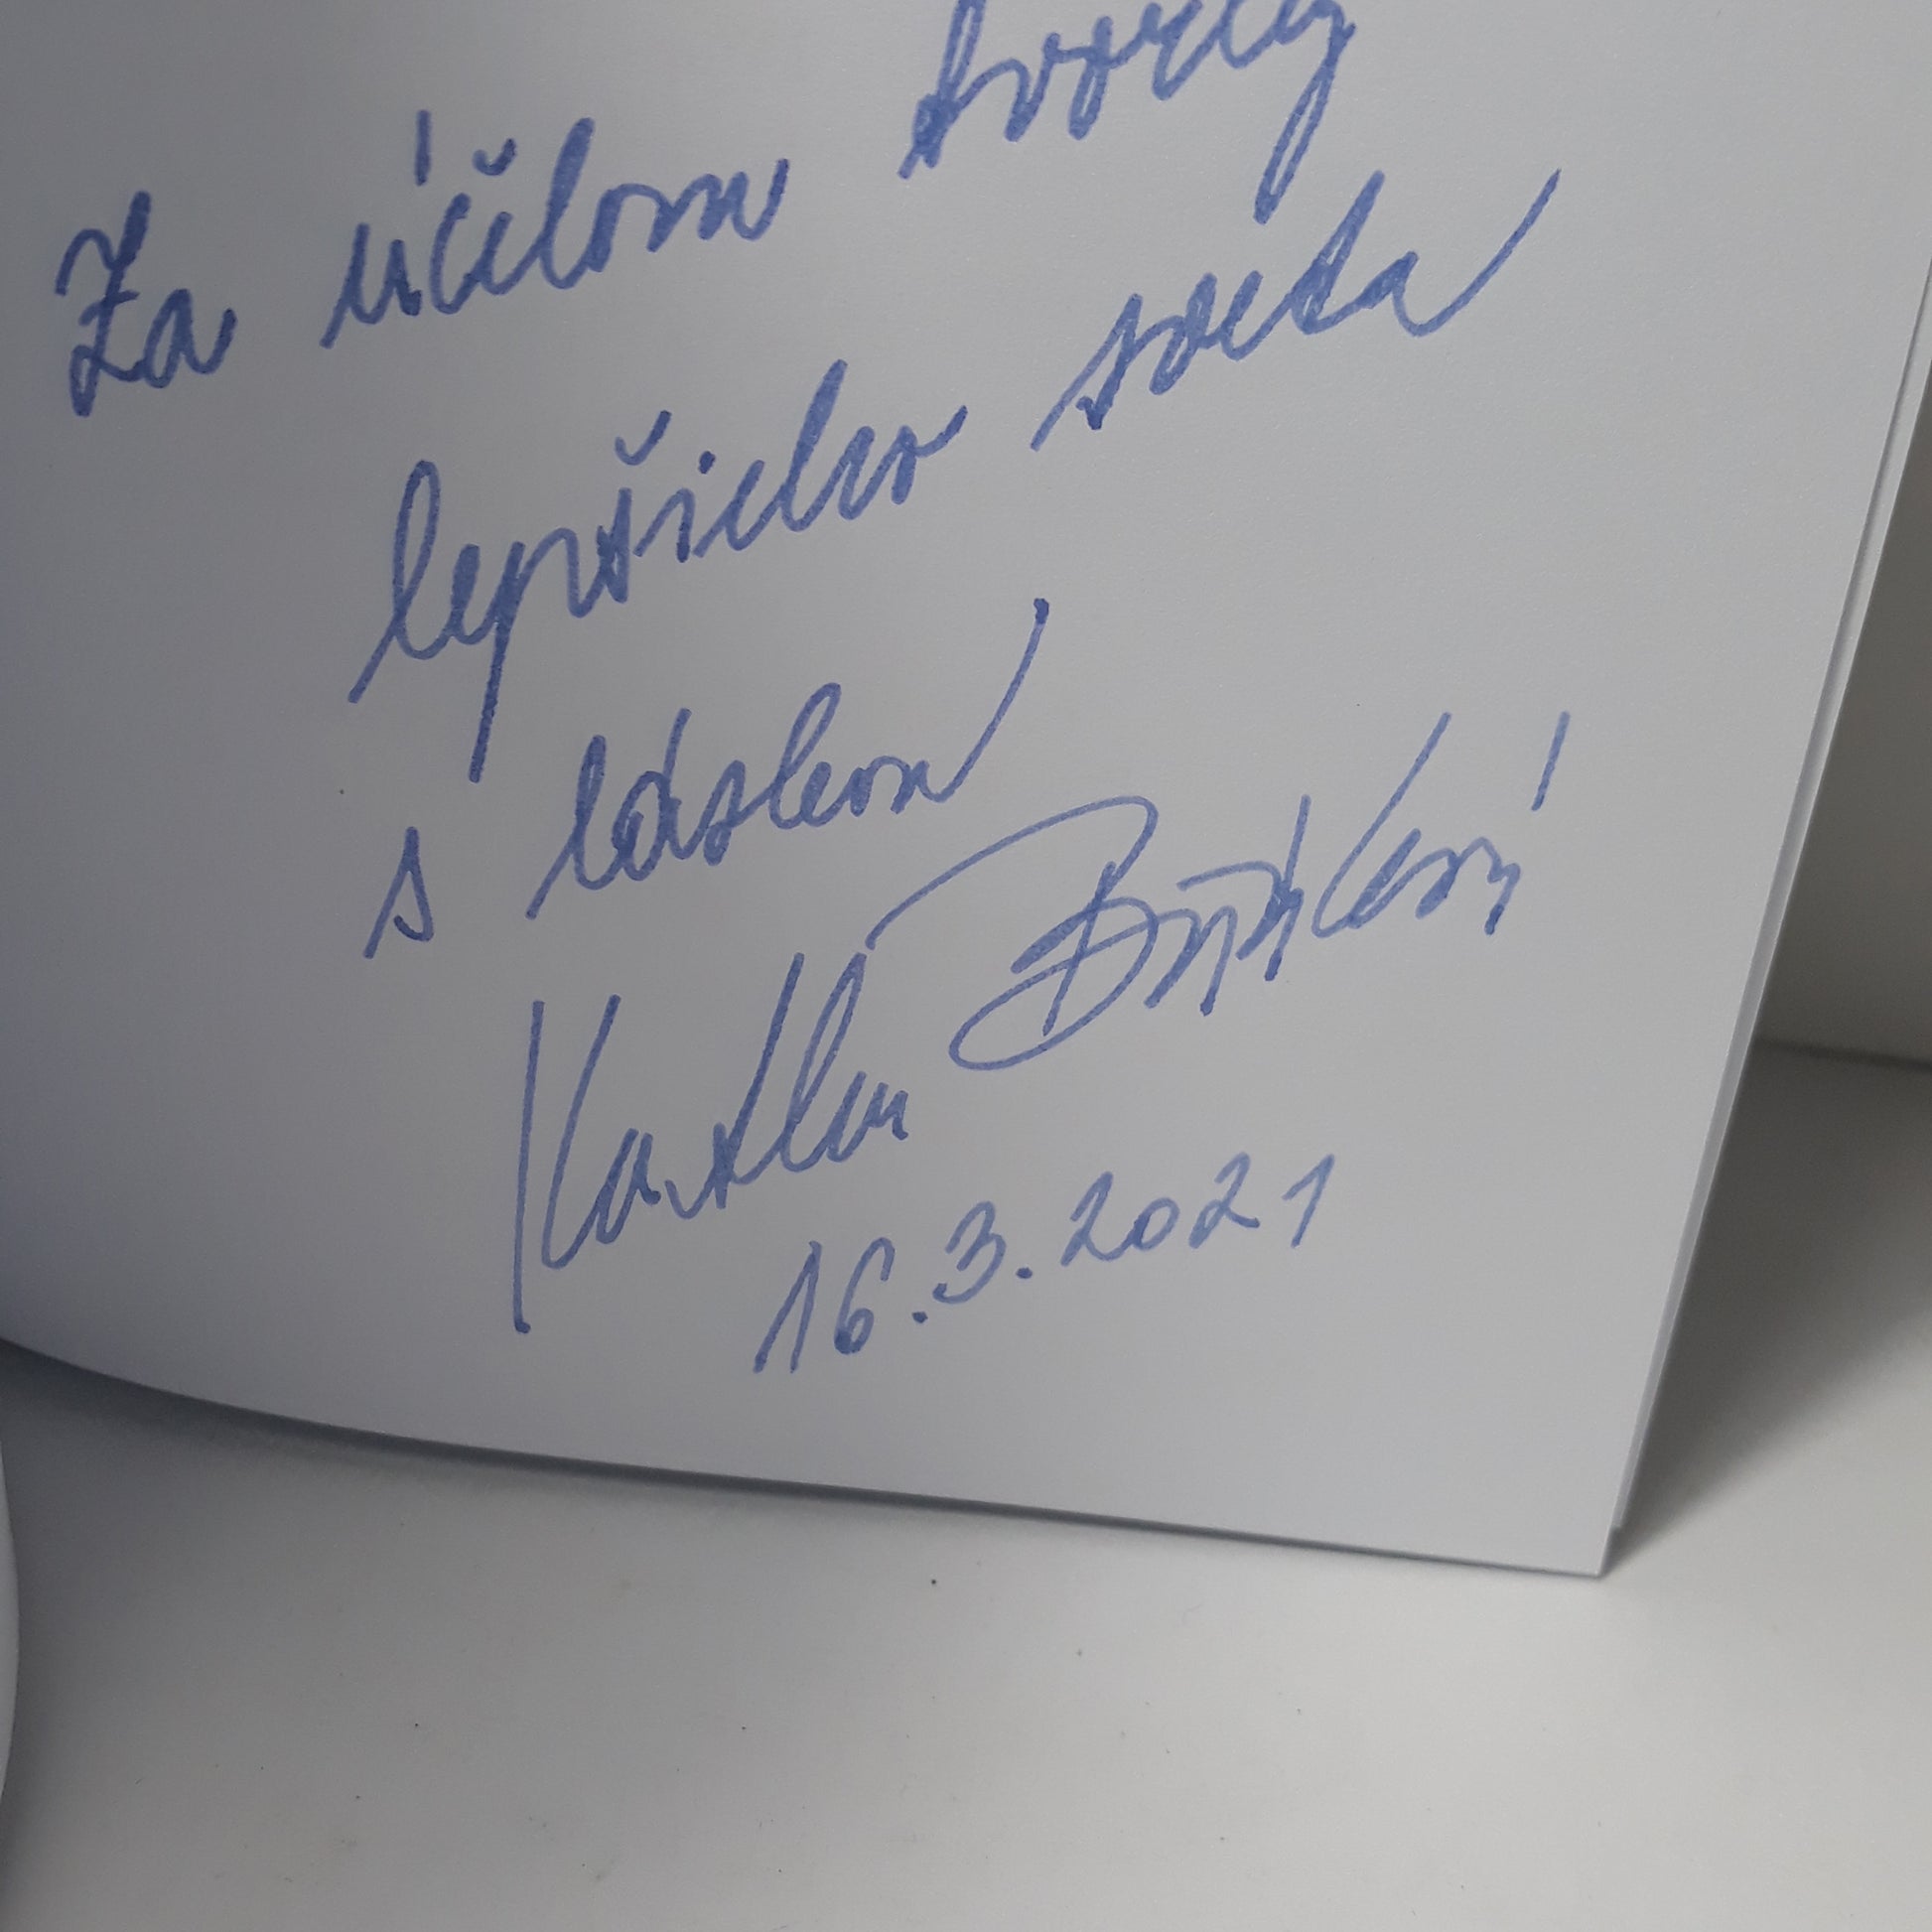 Za účelom tvorby
lepšieho sveta
s láskou
16.3.2021